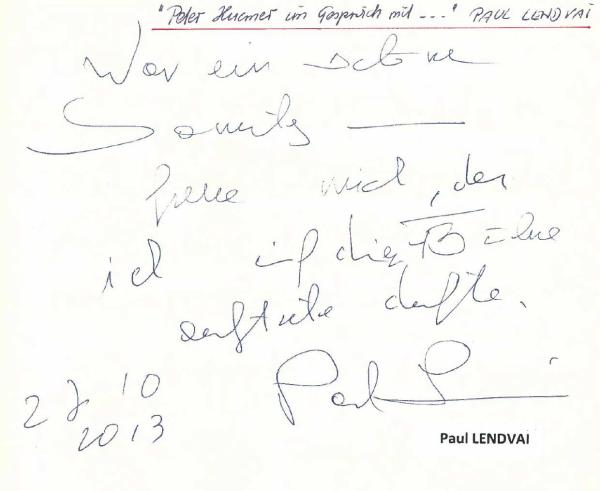 "Peter Huemer im Gespräch mit ..." PAUL LENDVAI
War ein schöne
Sonntag —
freue mich, das
ich auf die Bühne
auftrete durfte.
Paul
27 10
2013
Paul LENDVAI